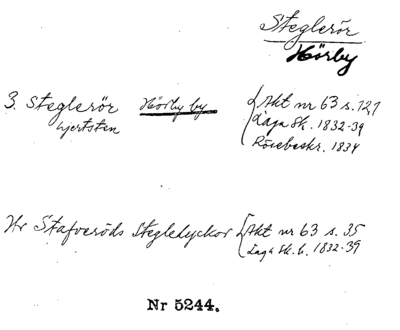 Steglerör
Hörby
3. Steglerör Hörby by { Akt nr 63 s. 127
hjertsten Laga Sk. 1832-39
Rösebeskr. 1834
Hr Stafveröds Stegledyckor { Akt nr 63 s. 35
Laga Sk. b. 1832-39
Nr 5244.